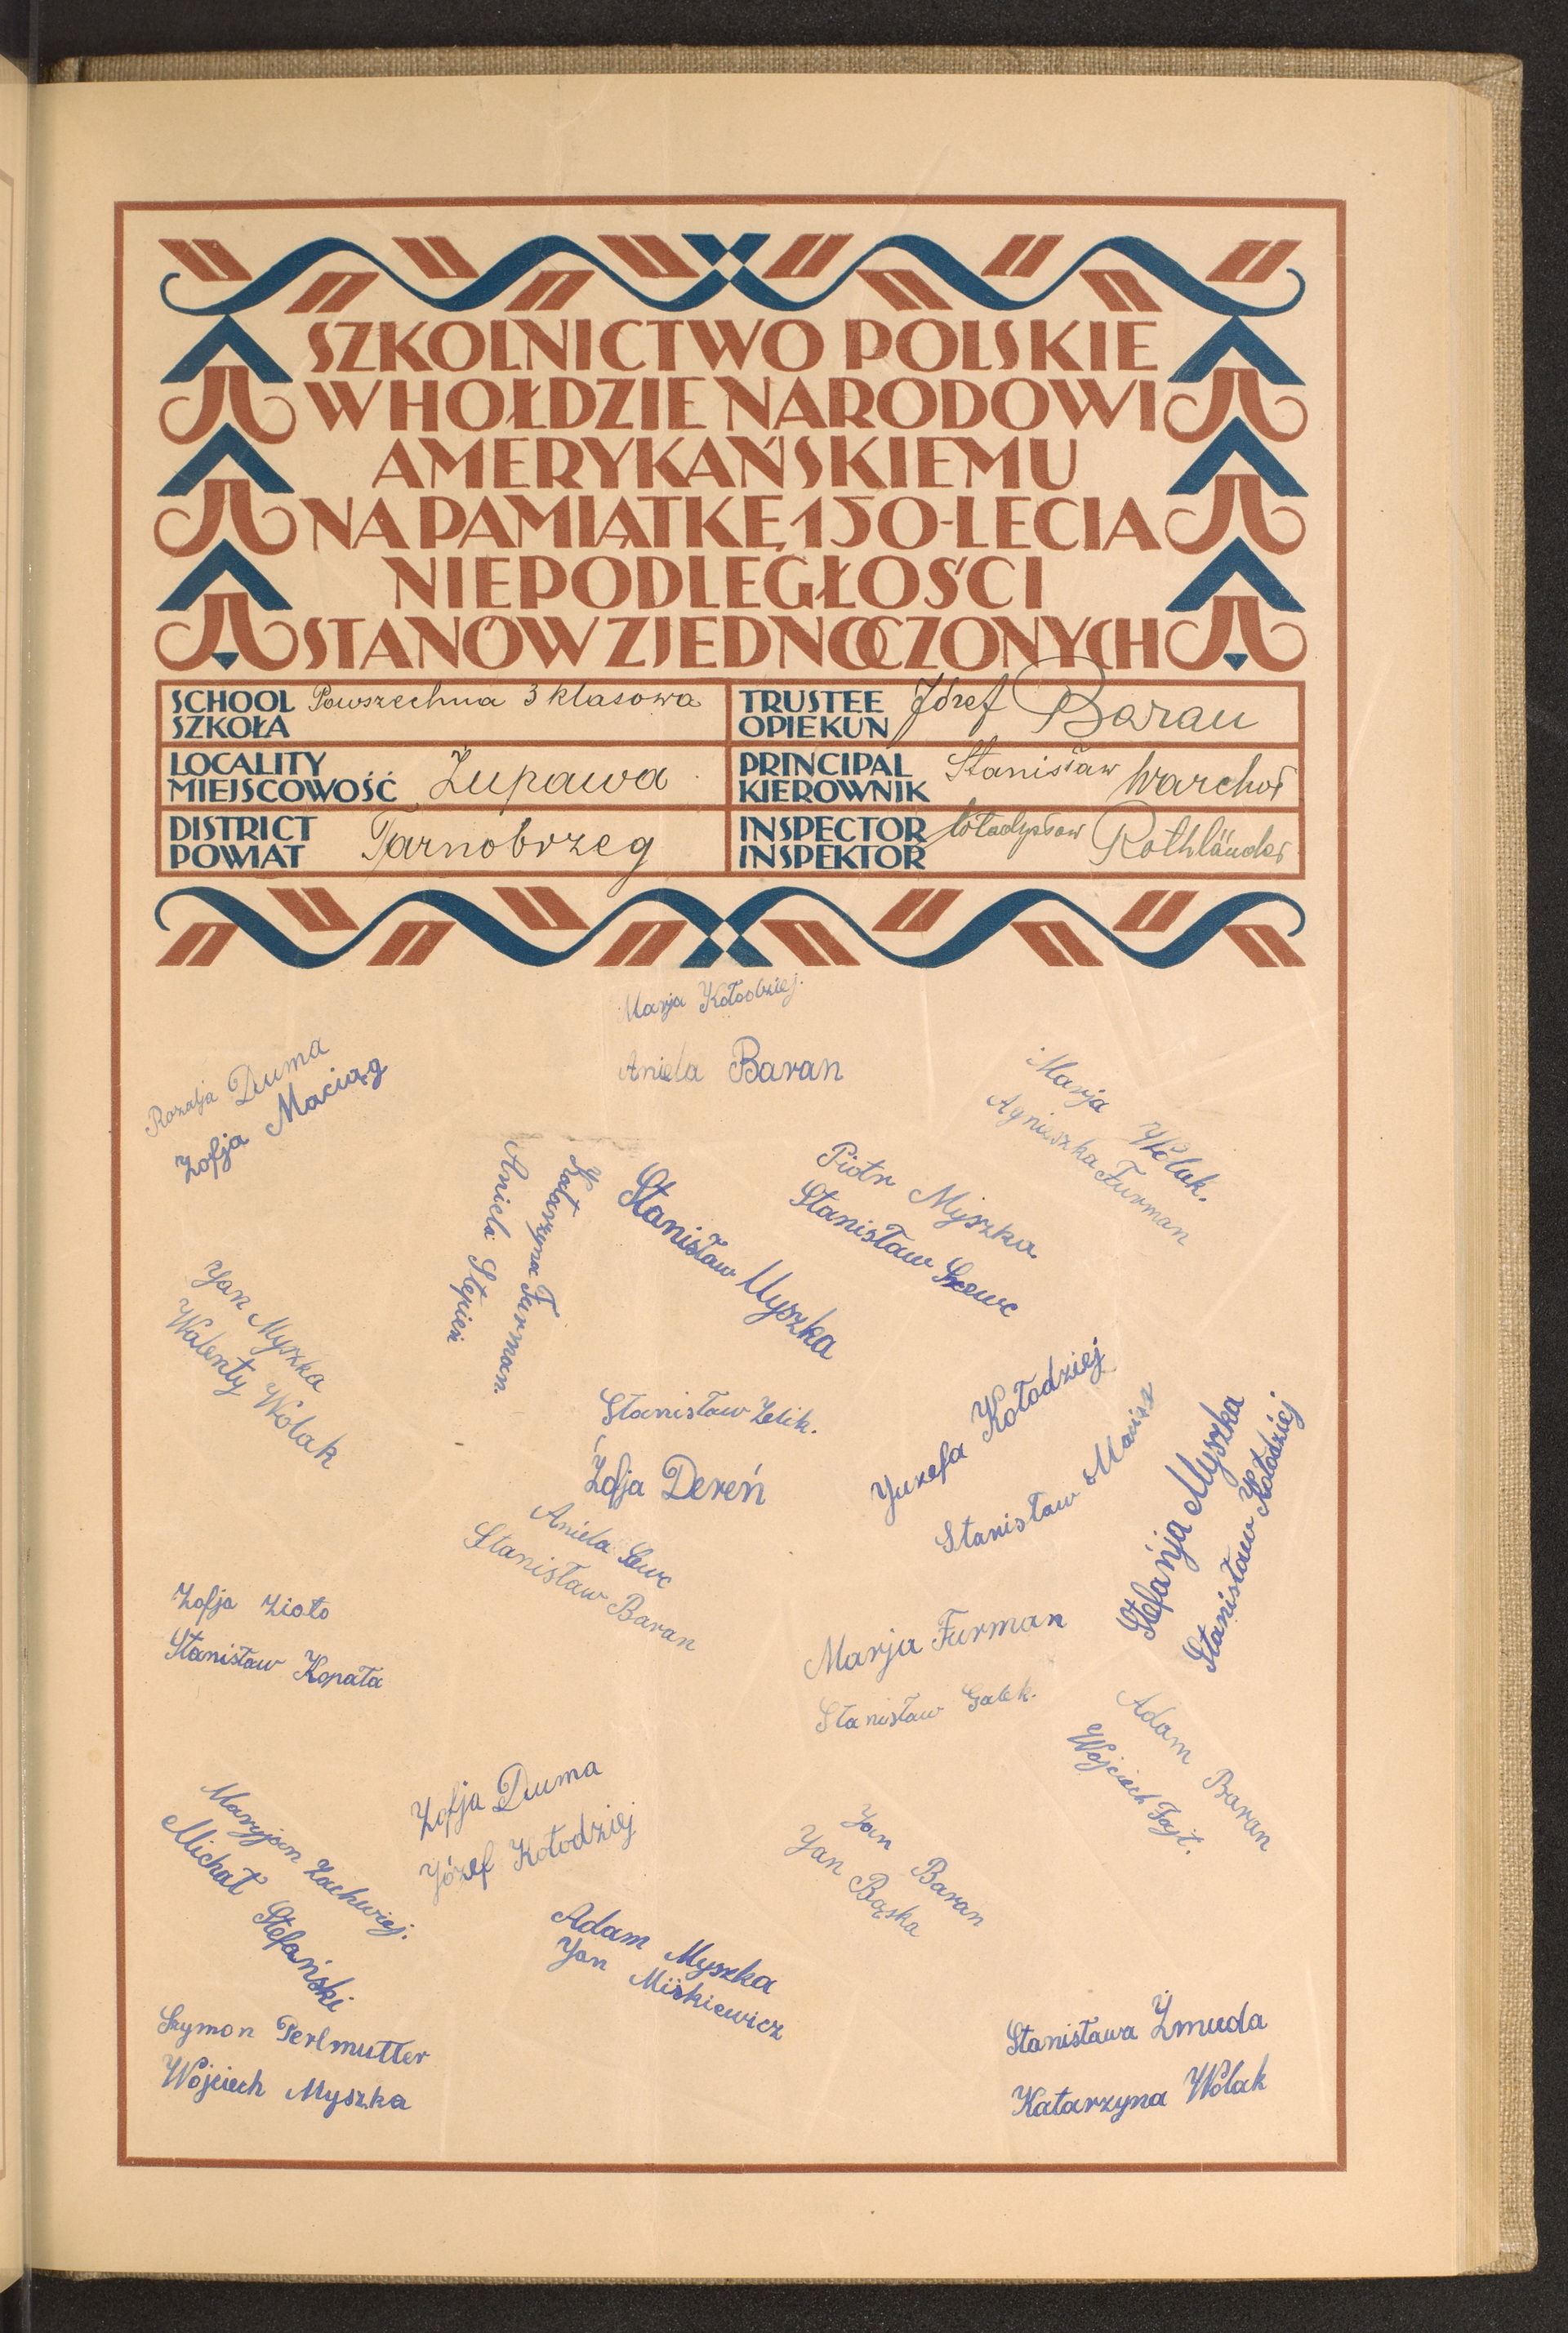 SZKOLNICTWO POLSKIE
W HOŁDZIE NARODOWI
AMERYKAŃSKIEMU
NA PAMIĄTKĘ 150-LECIA
NIEPODLEGŁOŚCI
STANÓW ZJEDNOCZONYCH
SCHOOL
SZKOŁA
Powszechna 3 klasowa
TRUSTEE
OPIEKUN
Józef Baran
LOCALITY
MIEJSCOWOŚĆ
Żupawa
PRINCIPAL
KIEROWNIK
Stanisław Warchoł
DISTRICT
POWIAT
Tarnobrzeg
INSPECTOR
INSPEKTOR
Władysław Rothländer
Marja Kołodziej.
Aniela Baran
Rozalja Duma
Zofja Maciąg
Marja Wolak.
Agnieszka Furman
Katarzyna Furman.
Aniela Stępień
Stanisław Myszka
Piotr Myszka
Stanisław Szewc
Jan Myszka
Walenty Wolak
Stanisław Zelik.
Zofja Dereń
Józefa Kołodziej
Stanisław
Stefanja Myszka
Stanisław Kołodziej
Aniela
Stanisław Baran
Zofja Zioło
Stanisław Kopała
Marja Furman
Stanisław Galek.
Adam Baran
Wojciech Fajt.
Zofja Duma
Józef Kołodziej
Maryjan Zachwiej.
Michał Stefański
Jan Baran
Jan Bąska
Adam Myszka
Jan Miśkiewicz
Szymon Perlmutter
Wojciech Myszka
Stanisława Żmuda
Katarzyna Wolak